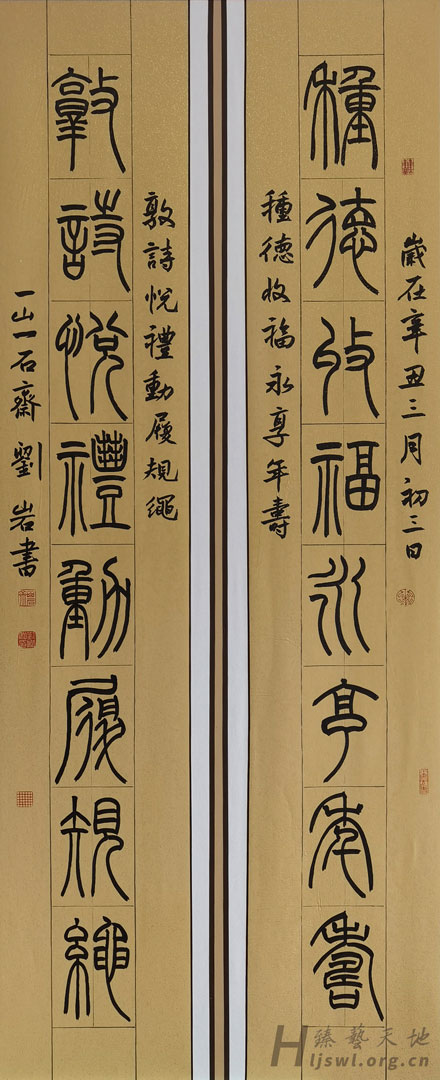 歲在辛丑三月初三日
種德收福永享年壽
種德收福永享年壽
敦詩悅禮動履規繩
敦詩悅禮動履規繩
一山一石齋劉岩書
臻藝天地
Hljswl.org.cn